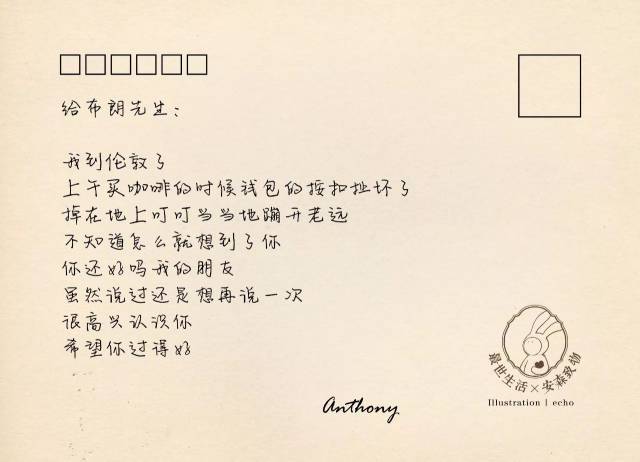 给布朗先生:
我到伦敦了
上午买咖啡的时候钱包的按扣扯坏了
掉在地上叮叮当当地蹦开老远
不知道怎么就想到了你
你还好吗我的朋友
虽然说过还是想再说一次
很高兴认识你
希望你过得好
Anthony
最世生活×安森致物
Illustration | echo